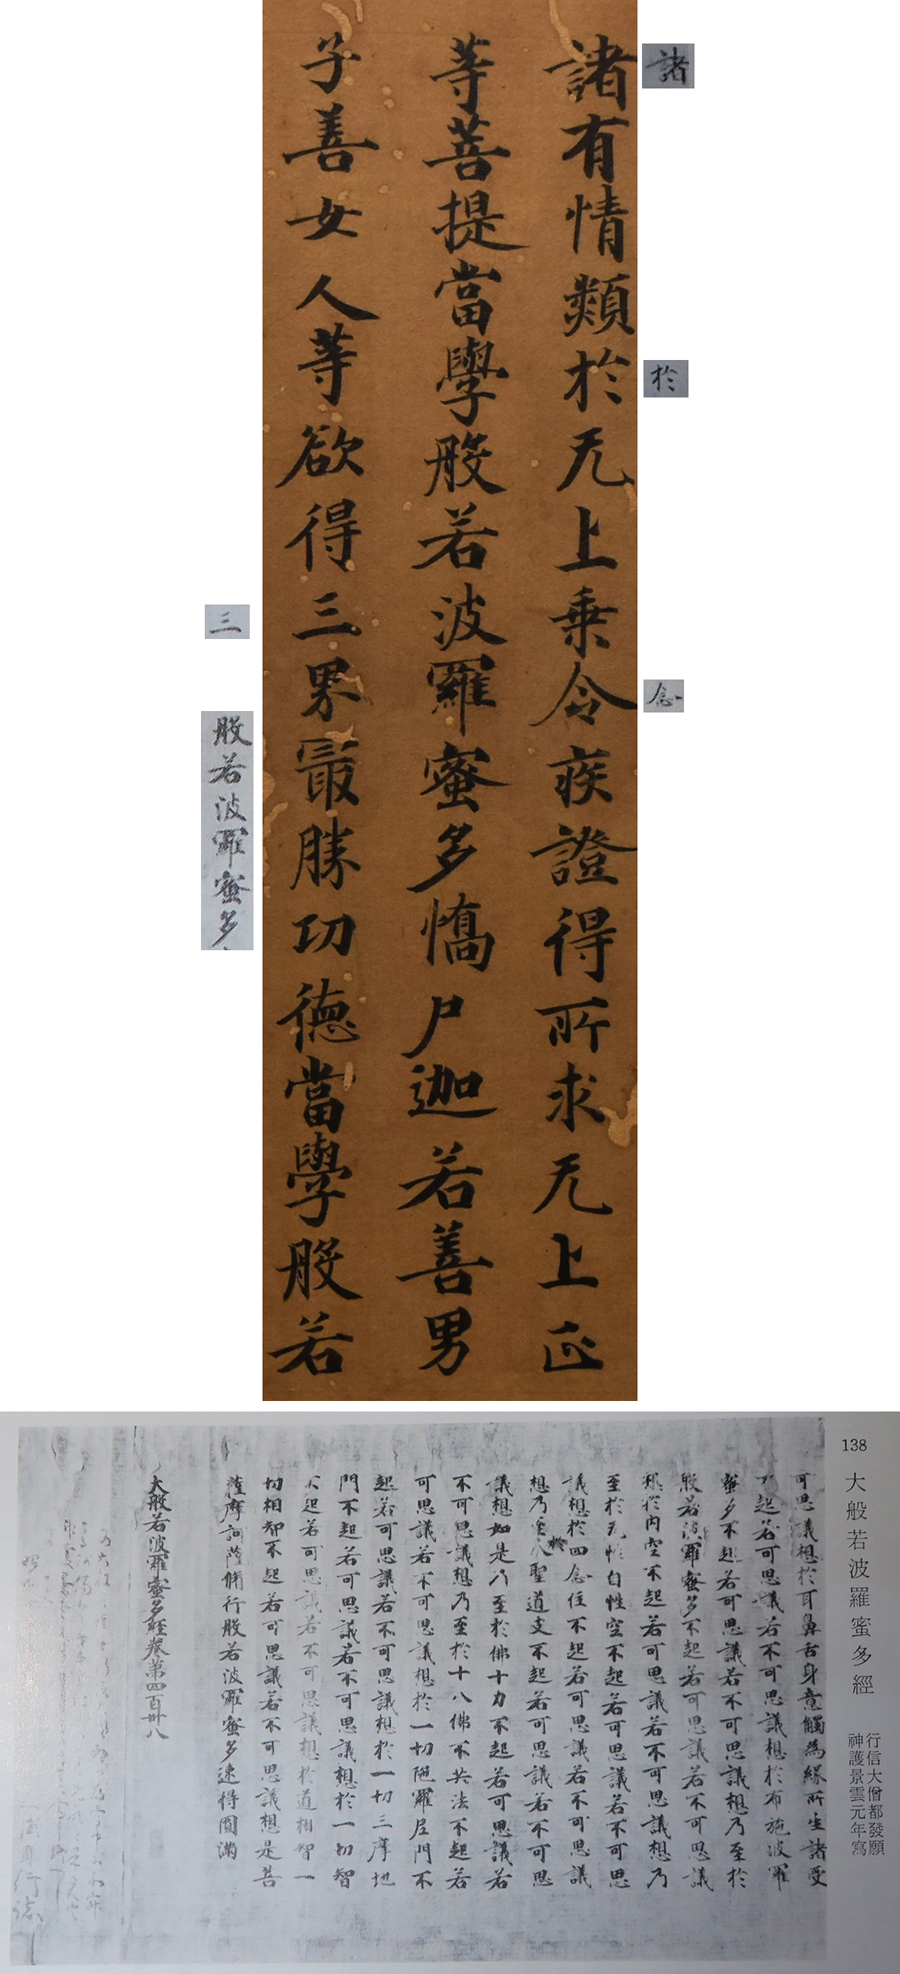 諸有情類於无上乗令疾證得所求无上正
等菩提當學般若波羅蜜多憍尸迦若善男
子善女人等欲得三界最勝功德當學般若
諸
於
念
三
般若波羅蜜多
138
大般若波羅蜜多經
行信大僧都發願
神護景雲元年寫
可思議想於耳鼻舌身意觸為緣所生諸受
不起若可思議若不可思議想於布施波羅
蜜多不起若可思議若不可思議想乃至於
般若波羅蜜多不起若可思議若不可思議
想於內空不起若可思議若不可思議想乃
至於无性自性空不起若可思議若不可思
議想於四念住不起若可思議若不可思議
想乃至於八聖道支不起若可思議若不可思
議想如是乃至於佛十力不起若可思議若
不可思議想乃至於十八佛不共法不起若
可思議若不可思議想於一切陁羅尼門不
起若可思議若不可思議想於一切三摩地
門不起若可思議若不可思議想於一切智
不起若可思議若不可思議想於道相智一
切相智不起若可思議若不可思議想是菩
薩摩訶薩脩行般若波羅蜜多速得圓滿
大般若波羅蜜多經卷第四百卅八